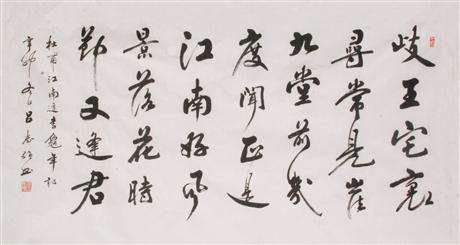 岐王宅裏
尋常見崔
九堂前幾
度聞正是
江南好風
景落花時
節又逢君
杜甫江南逢李龜年詩
辛卯冬日吕志